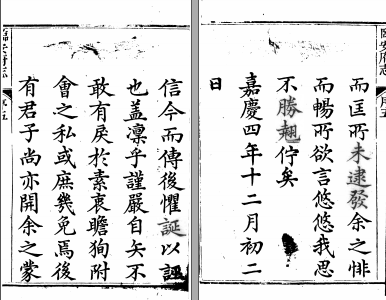 信今而傳後懼誕以誣
也蓋凜乎謹嚴自矢不
敢有戾於素衷瞻狥附
會之私或庶幾免焉後
有君子尚亦開余之蒙
臨安府志 序五
臨安府志 序五
而匡所未逮發余之悱
而暢所欲言悠悠我思
不勝翹佇矣
嘉慶四年十二月初二
日